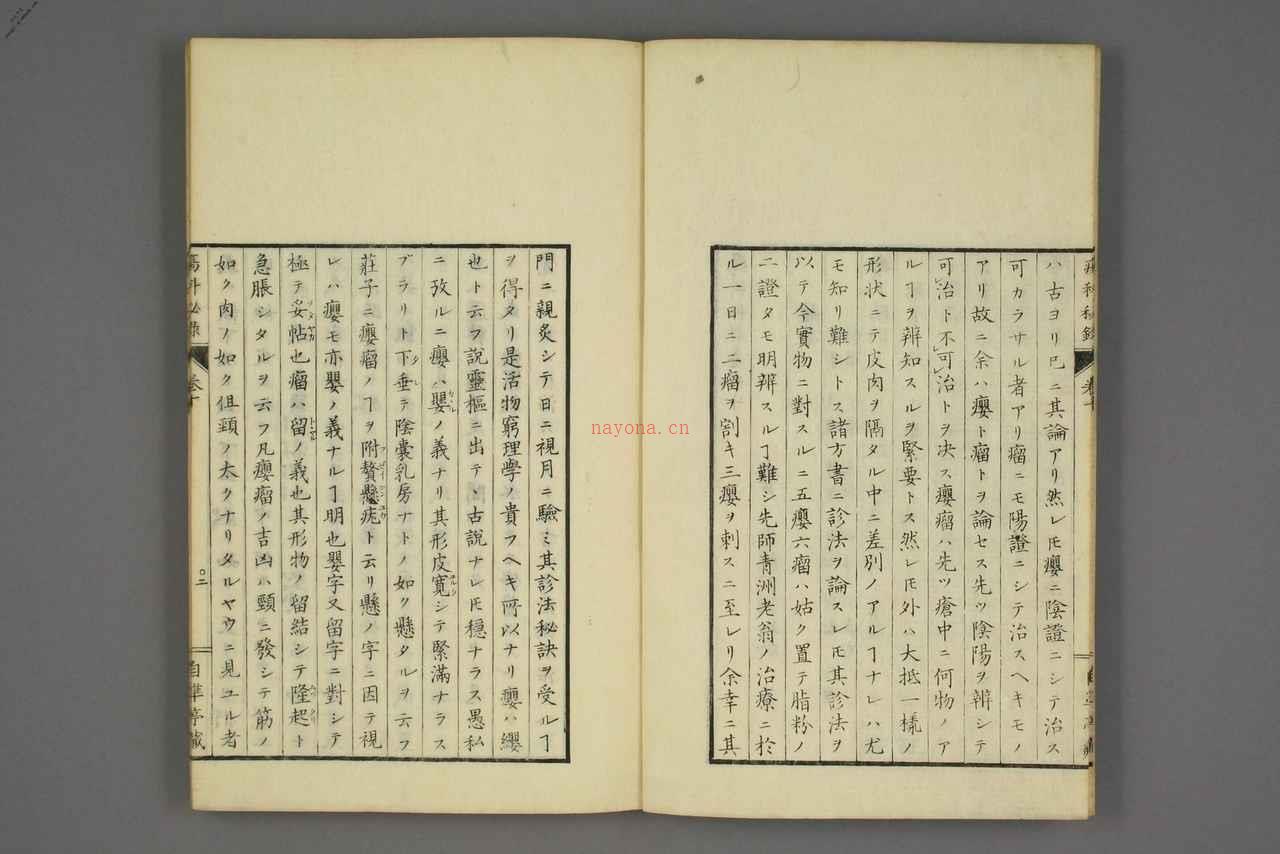 ハ古ヨリ已ニ其論アリ然レ𪜈癭ニ陰證ニシテ治ス
可カラサル者アリ瘤ニモ陽證ニシテ治スヘキモノ
アリ故ニ余ハ癭ト瘤トヲ論セス先ツ陰陽ヲ辨シテ
可治ト不可治トヲ决ス癭瘤ハ先ツ瘡中ニ何物ノア
ルヿヲ辨知スルヲ緊要トス然レ𪜈外ハ大抵一樣ノ
形状ニテ皮肉ヲ隔タル中ニ差別ノアルヿナレハ尤
モ知リ難シトス諸方書ニ診法ヲ論スレ𪜈其診法ヲ
以テ今實物ニ對スルニ五癭六瘤ハ姑ク置テ脂粉ノ
二證タモ明辨スルヿ難シ先師青洲老翁ノ治療ニ於
ル一日ニ二瘤ヲ割キ三癭ヲ刺スニ至レリ余幸ニ其
門ニ親炙シテ日ニ視月ニ驗ミ其診法秘訣ヲ受ルヿ
ヲ得タリ是活物窮理學ノ貴フヘキ所以ナリ癭ハ纓
也ト云フ說靈樞ニ出テヽ古說ナレ𪜈穩ナラス愚私
ニ攷ルニ癭ハ嬰ノ義ナリ其形皮寛シテ緊滿ナラス
ブラリト下垂テ陰嚢乳房ナトノ如ク懸タルヲ云フ
莊子ニ癭瘤ノヿヲ附贅懸疣ト云リ懸ノ字ニ因テ視
レハ癭モ亦嬰ノ義ナルヿ明也嬰字又留字ニ對シテ
極テ妥帖也瘤ハ留ノ義也其形物ノ留結シテ隆起ト
急脹シタルヲ云フ凡癭瘤ノ吉凶ハ頸ニ發シテ筋ノ
如ク肉ノ如ク但頸ノ太クナリタルヤウニ見ユル者
卷十
二
自準亭藏
nayona.cn